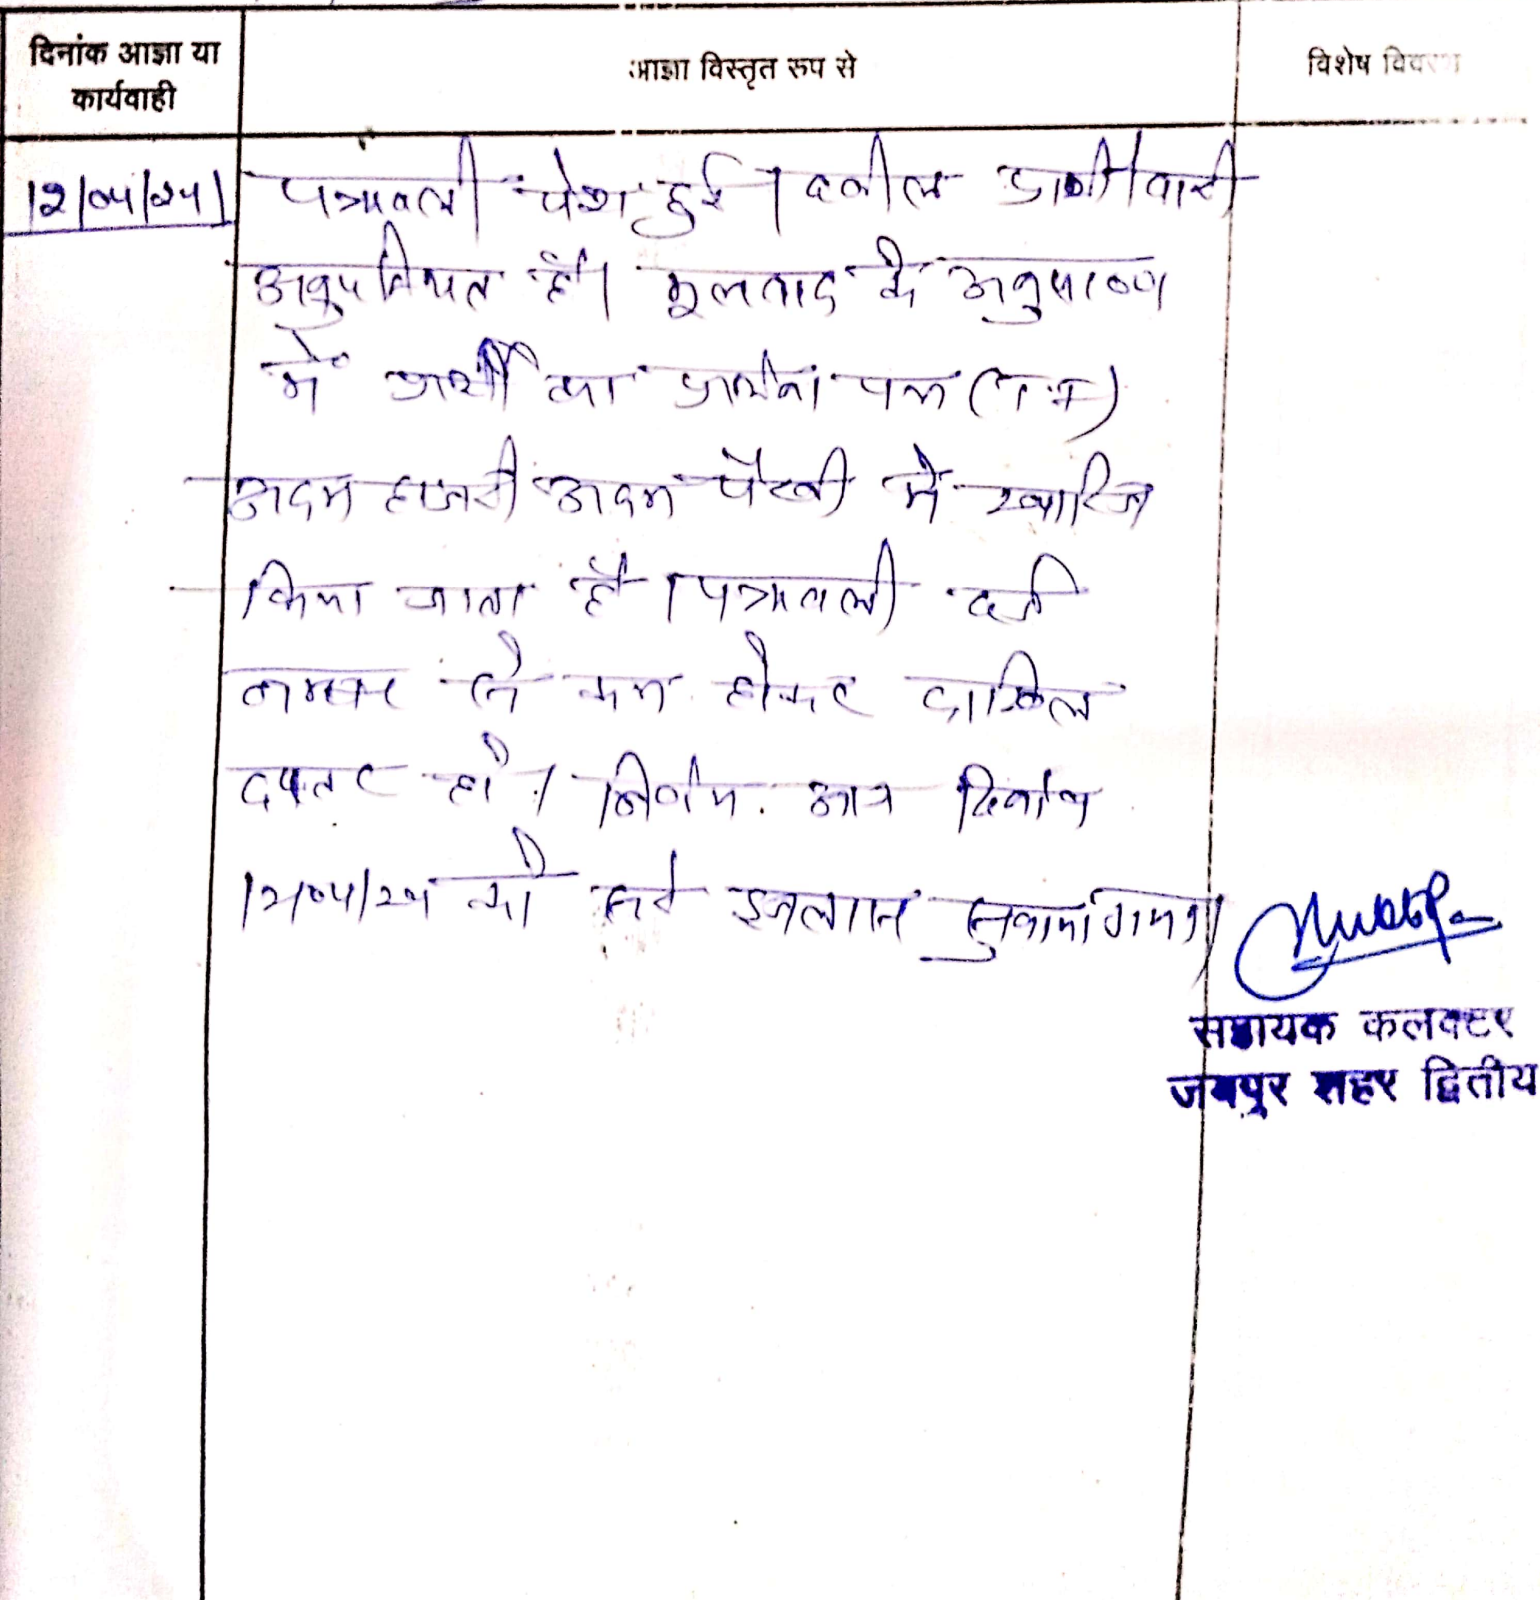 दिनांक आज्ञा या
कार्यवाही
आज्ञा विस्तृत रूप से
विशेष विवरण
पत्रावली पेश हुई। वकील प्रार्थी/वादी
अनुपस्थित है। मूलवाद के अनुसरण
में प्रार्थी का प्रार्थना पत्र (T.I)
अदम हाजरी अदम पैरवी में खारिज
किया जाता है। पत्रावली दर्ज
नम्बर से कम होकर दाखिल
दफ्तर हो। निर्णय आज दिनांक
को सरे इजलास सुनाया गया।
सहायक कलक्टर
जयपुर शहर द्वितीय